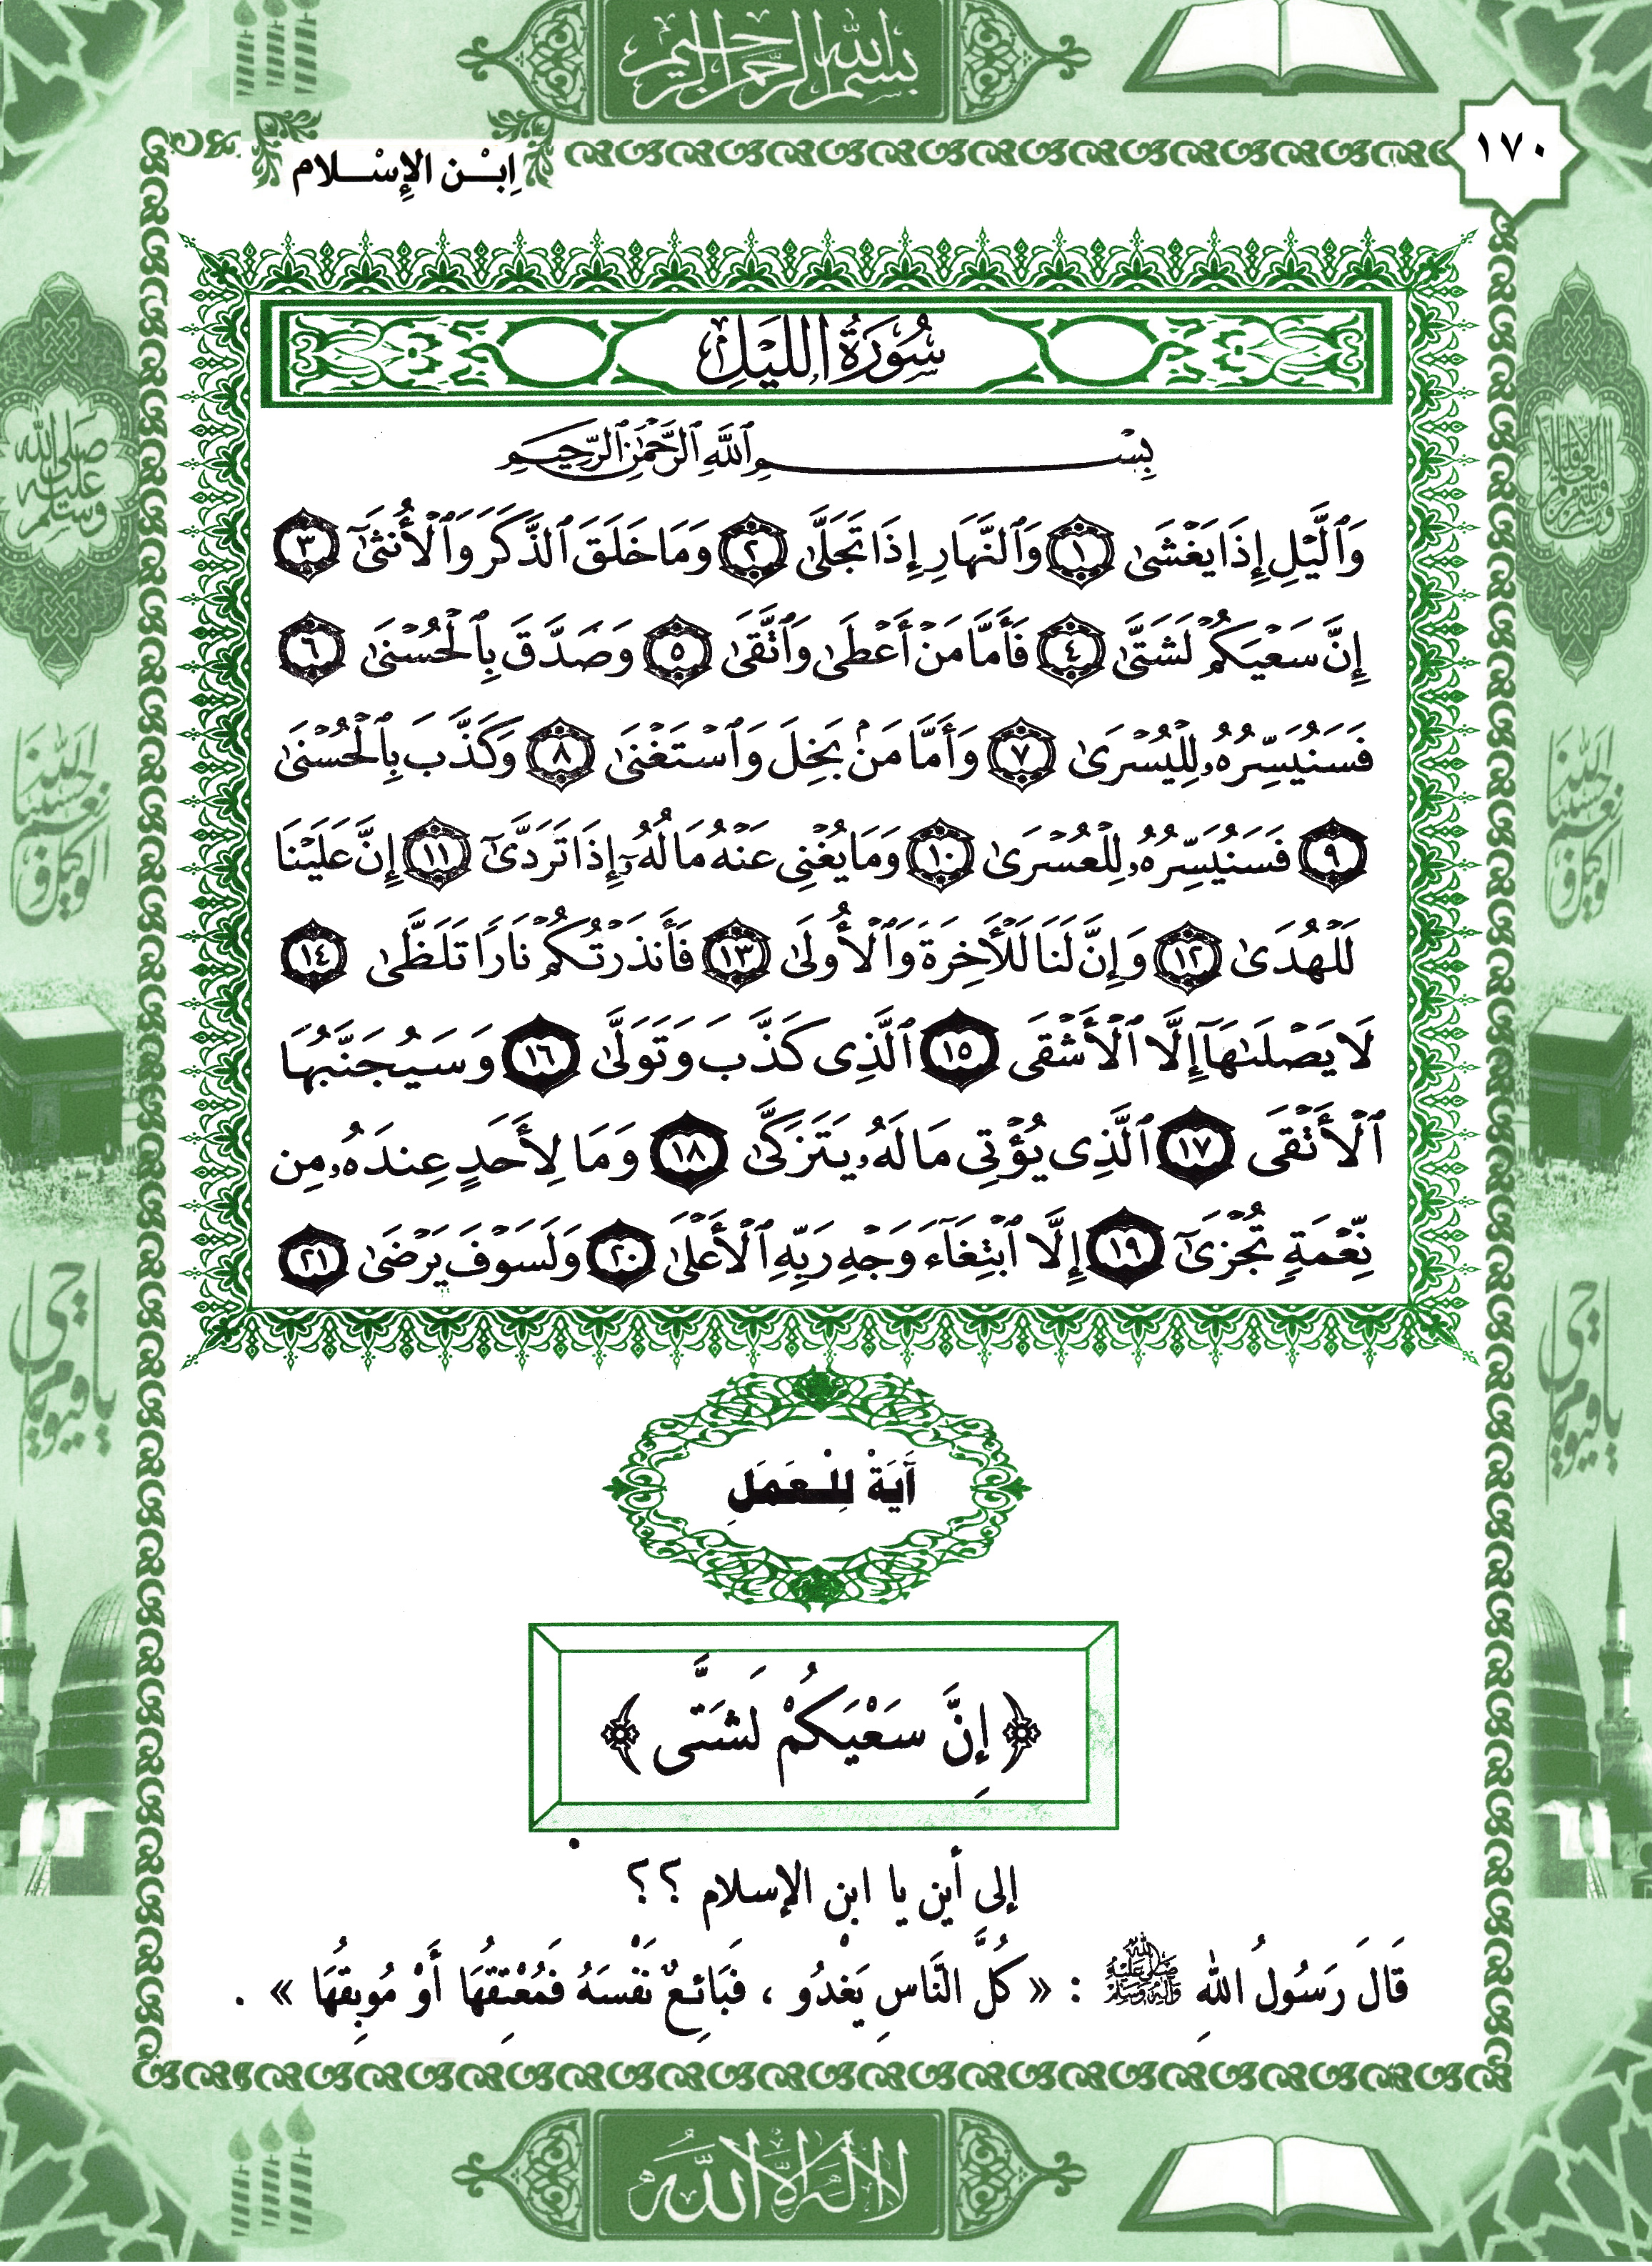 بسم الله الرحمن الرحيم
١٧٠
اِبْـن الإِسْـلام
سُورَةُ اللَّيْلِ
بِسْمِ ٱللَّهِ ٱلرَّحْمَٰنِ ٱلرَّحِيمِ
وَٱلَّيْلِ إِذَا يَغْشَىٰ ١ وَٱلنَّهَارِ إِذَا تَجَلَّىٰ ٢ وَمَا خَلَقَ ٱلذَّكَرَ وَٱلْأُنثَىٰٓ ٣
إِنَّ سَعْيَكُمْ لَشَتَّىٰ ٤ فَأَمَّا مَنْ أَعْطَىٰ وَٱتَّقَىٰ ٥ وَصَدَّقَ بِٱلْحُسْنَىٰ ٦
فَسَنُيَسِّرُهُۥ لِلْيُسْرَىٰ ٧ وَأَمَّا مَنۢ بَخِلَ وَٱسْتَغْنَىٰ ٨ وَكَذَّبَ بِٱلْحُسْنَىٰ
٩ فَسَنُيَسِّرُهُۥ لِلْعُسْرَىٰ ١٠ وَمَا يُغْنِى عَنْهُ مَالُهُۥٓ إِذَا تَرَدَّىٰٓ ١١ إِنَّ عَلَيْنَا
لَلْهُدَىٰ ١٢ وَإِنَّ لَنَا لَلْأَخِرَةَ وَٱلْأُولَىٰ ١٣ فَأَنذَرْتُكُمْ نَارًا تَلَظَّىٰ ١٤
لَا يَصْلَىٰهَآ إِلَّا ٱلْأَشْقَى ١٥ ٱلَّذِى كَذَّبَ وَتَوَلَّىٰ ١٦ وَسَيُجَنَّبُهَا
ٱلْأَتْقَى ١٧ ٱلَّذِى يُؤْتِى مَالَهُۥ يَتَزَكَّىٰ ١٨ وَمَا لِأَحَدٍ عِندَهُۥ مِن
نِّعْمَةٍ تُجْزَىٰٓ ١٩ إِلَّا ٱبْتِغَآءَ وَجْهِ رَبِّهِ ٱلْأَعْلَىٰ ٢٠ وَلَسَوْفَ يَرْضَىٰ ٢١
آيَةْ لِلْـعَمَلِ
﴿ إِنَّ سَعْيَكُمْ لَشَتَّى ﴾
إلى أين يا ابن الإسلام ؟؟
قَالَ رَسُولُ اللهِ ﷺ : « كُلُّ النَّاسِ يَغْدُو ، فَبَائِعٌ نَفْسَهُ فَمُعْتِقُهَا أَوْ مُوبِقُهَا » .
صلى الله عليه وسلم
حسبنا الله ونعم الوكيل
يا حي يا قيوم
حسبنا الله ونعم الوكيل
يا حي يا قيوم
لا اله الا الله